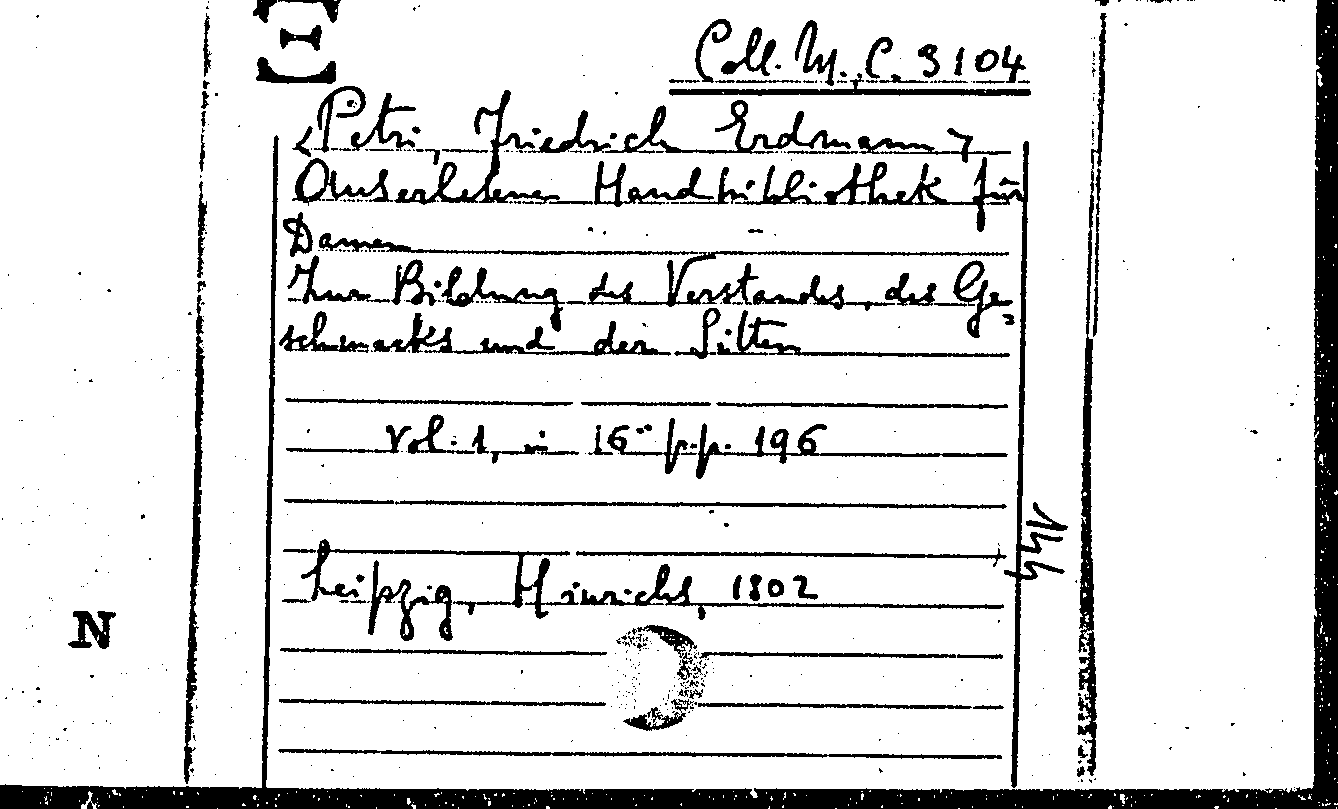 Coll. M., C. 3104
<Petri, Friedrich Erdmann>
Auserlesene Handbibliothek für
Damen
Zur Bildung des Verstandes, des Ge=
schmacks und der Sitten
Vol. 1, in 16° p.p. 196
Leipzig, Hinrichs, 1802
N